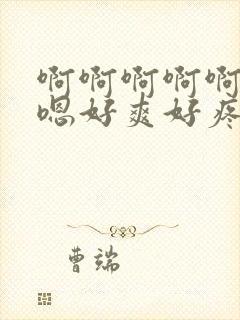 啊啊啊啊啊
嗯好爽好疼
曹端